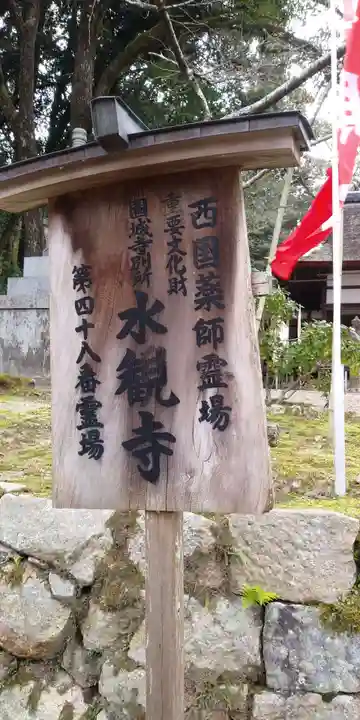 西国薬師霊場
重要文化財
園城寺別所
水観寺
第四十八番霊場